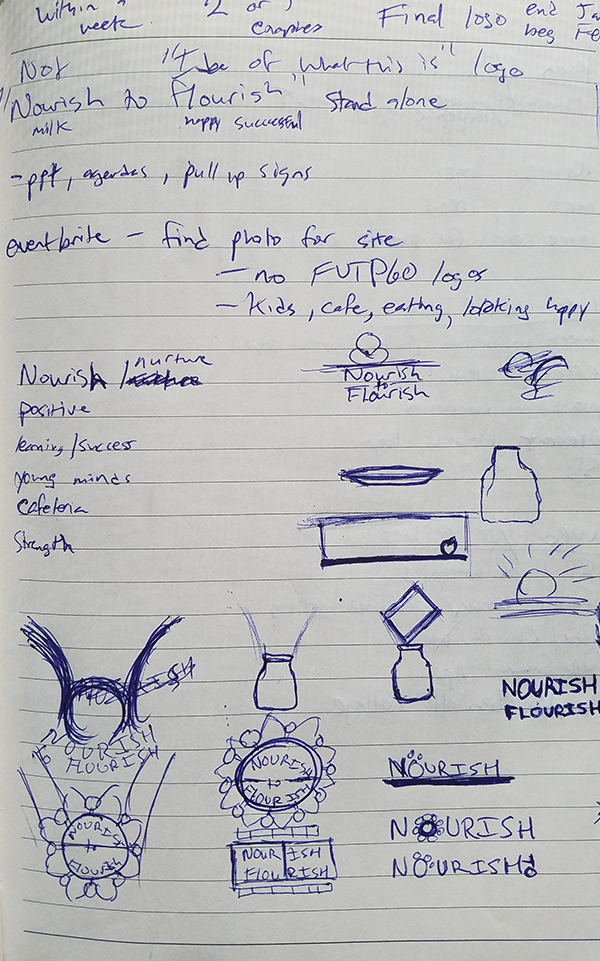 within a 2 or 3 Final logo end Ja
week Graphics beg Fe
Not "Tube of what this is" logo
"Nourish to flourish" stand alone
milk happy successful
- ppt, agendas, pull up signs
eventbrite - find photo for site
- no FUTP60 logos
- Kids, cafe, eating, looking happy
Nourish / nurture
positive
learning / success
young minds
Cafeteria
Strength
Nourish
to
Flourish
NOURISH
FLOURISH
NOURISH
FLOURISH
NOURISH
to
FLOURISH
NOURISH
NOURISH
to
Flourish
NOURISH
NOUR ISH
FLOU RISH
NOURISH